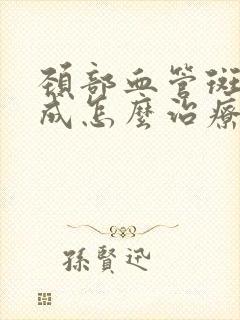 頚部血管斑
成怎麼治療
孫賢迅